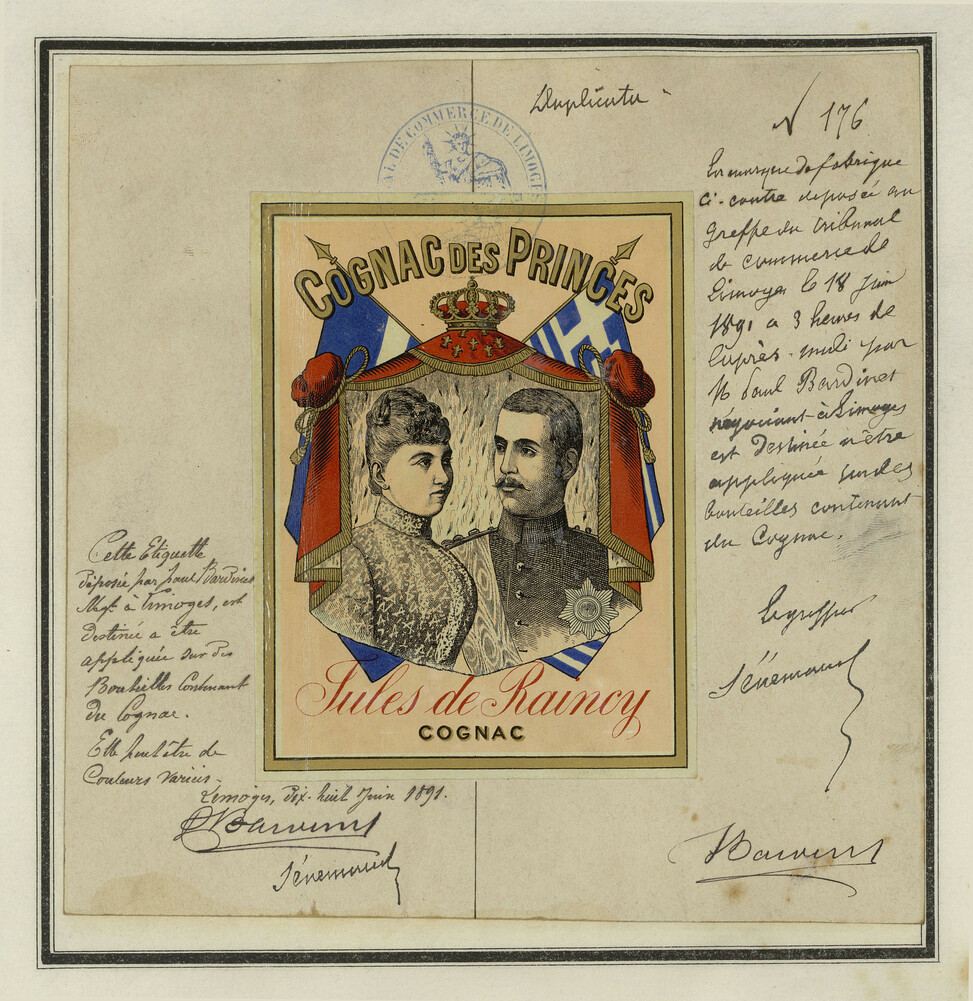 Duplicata
N 176
TRIBUNAL DE COMMERCE DE LIMOGES
COGNAC DES PRINCES
Jules de Rainoy
COGNAC
La marque de fabrique
ci-contre déposée au
greffe du tribunal
de commerce de
Limoges le 18 Juin
1891 a 3 heures de
l'après-midi par
M Paul Bardinet
négociant à Limoges
est Destinée a être
appliquée sur des
bouteilles contenant
du Cognac.
Le greffier
Sénemaud
Bardinet
Cette Etiquette
déposée par Paul Bardinet
Negt à Limoges, est
destinée a être
appliquée sur des
Bouteilles Contenant
du Cognac.
Elle peut être de
Couleurs Variées.
Limoges, dix-huit Juin 1891.
PBardinet
Sénemaud